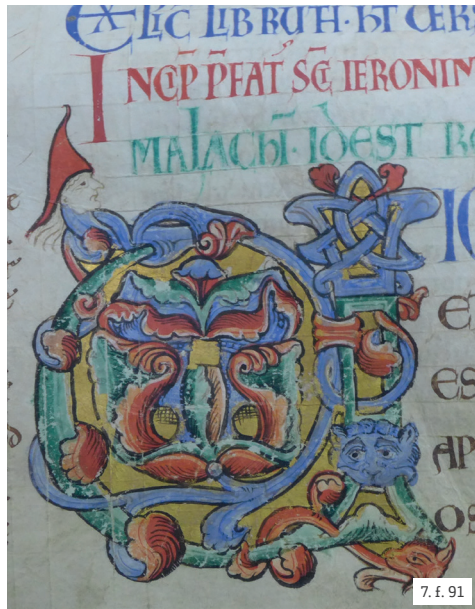 EXLIC LIB RUTH · HT CER
INCIP P̄FAT SC̄I IERONIM
MALACHI · IDEST R
ES
AP
OS
7. f. 91